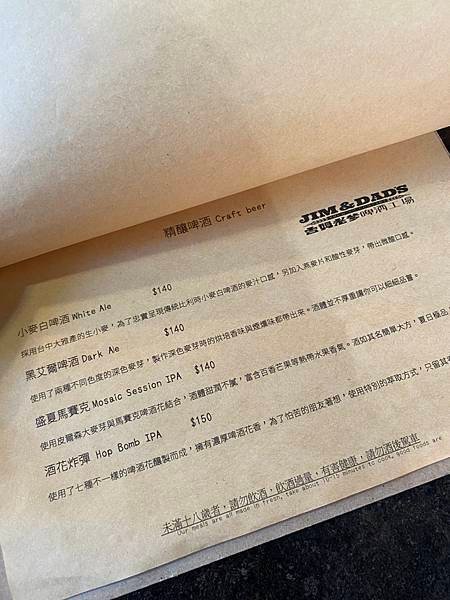 JIM & DAD'S
吉姆老爹啤酒工場
精釀啤酒 Craft beer
小麥白啤酒 White Ale $140
採用台中大雅產的生小麥，為了忠實呈現傳統比利時小麥白啤酒的麥汁口感，另加入燕麥片和酸性麥芽，帶出微酸口感。
黑艾爾啤酒 Dark Ale $140
使用了兩種不同色度的深色麥芽，製作深色麥芽時的烘培香味與煙燻味都帶出來。酒體並不厚重讓你可以細細品嘗。
盛夏馬賽克 Mosaic Session IPA $140
使用皮爾森大麥芽與馬賽克啤酒花結合，酒體甜潤不膩，富含百香芒果等熱帶水果香氣。酒如其名簡單大方，夏日極品
酒花炸彈 Hop Bomb IPA $150
使用了七種不一樣的啤酒花釀製而成，擁有濃厚啤酒花香，為了怕苦的朋友著想，使用特別的萃取方式，只留其
未滿十八歲者，請勿飲酒，飲酒過量，有害健康，請勿酒後駕車
Our meals are all made in fresh, take about 10-15 minutes to cook, good foods are